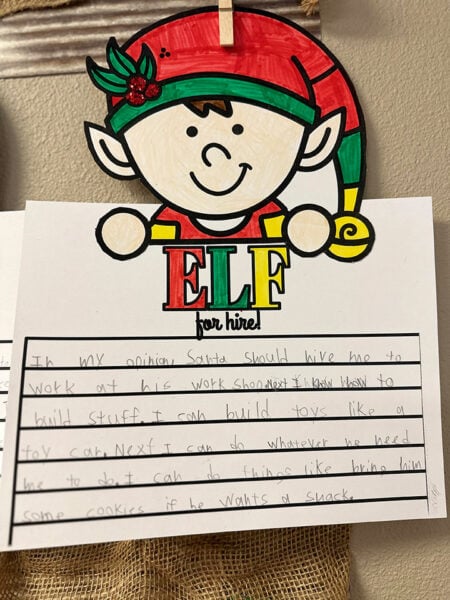 ELF
for hire!
In my opinion, Santa should hire me to
work at his work shop. Next I know how to
build stuff. I can build toys like a
toy car. Next I can do whatever he need
me to do. I can do things like bring him
some cookies if he wants a snack.